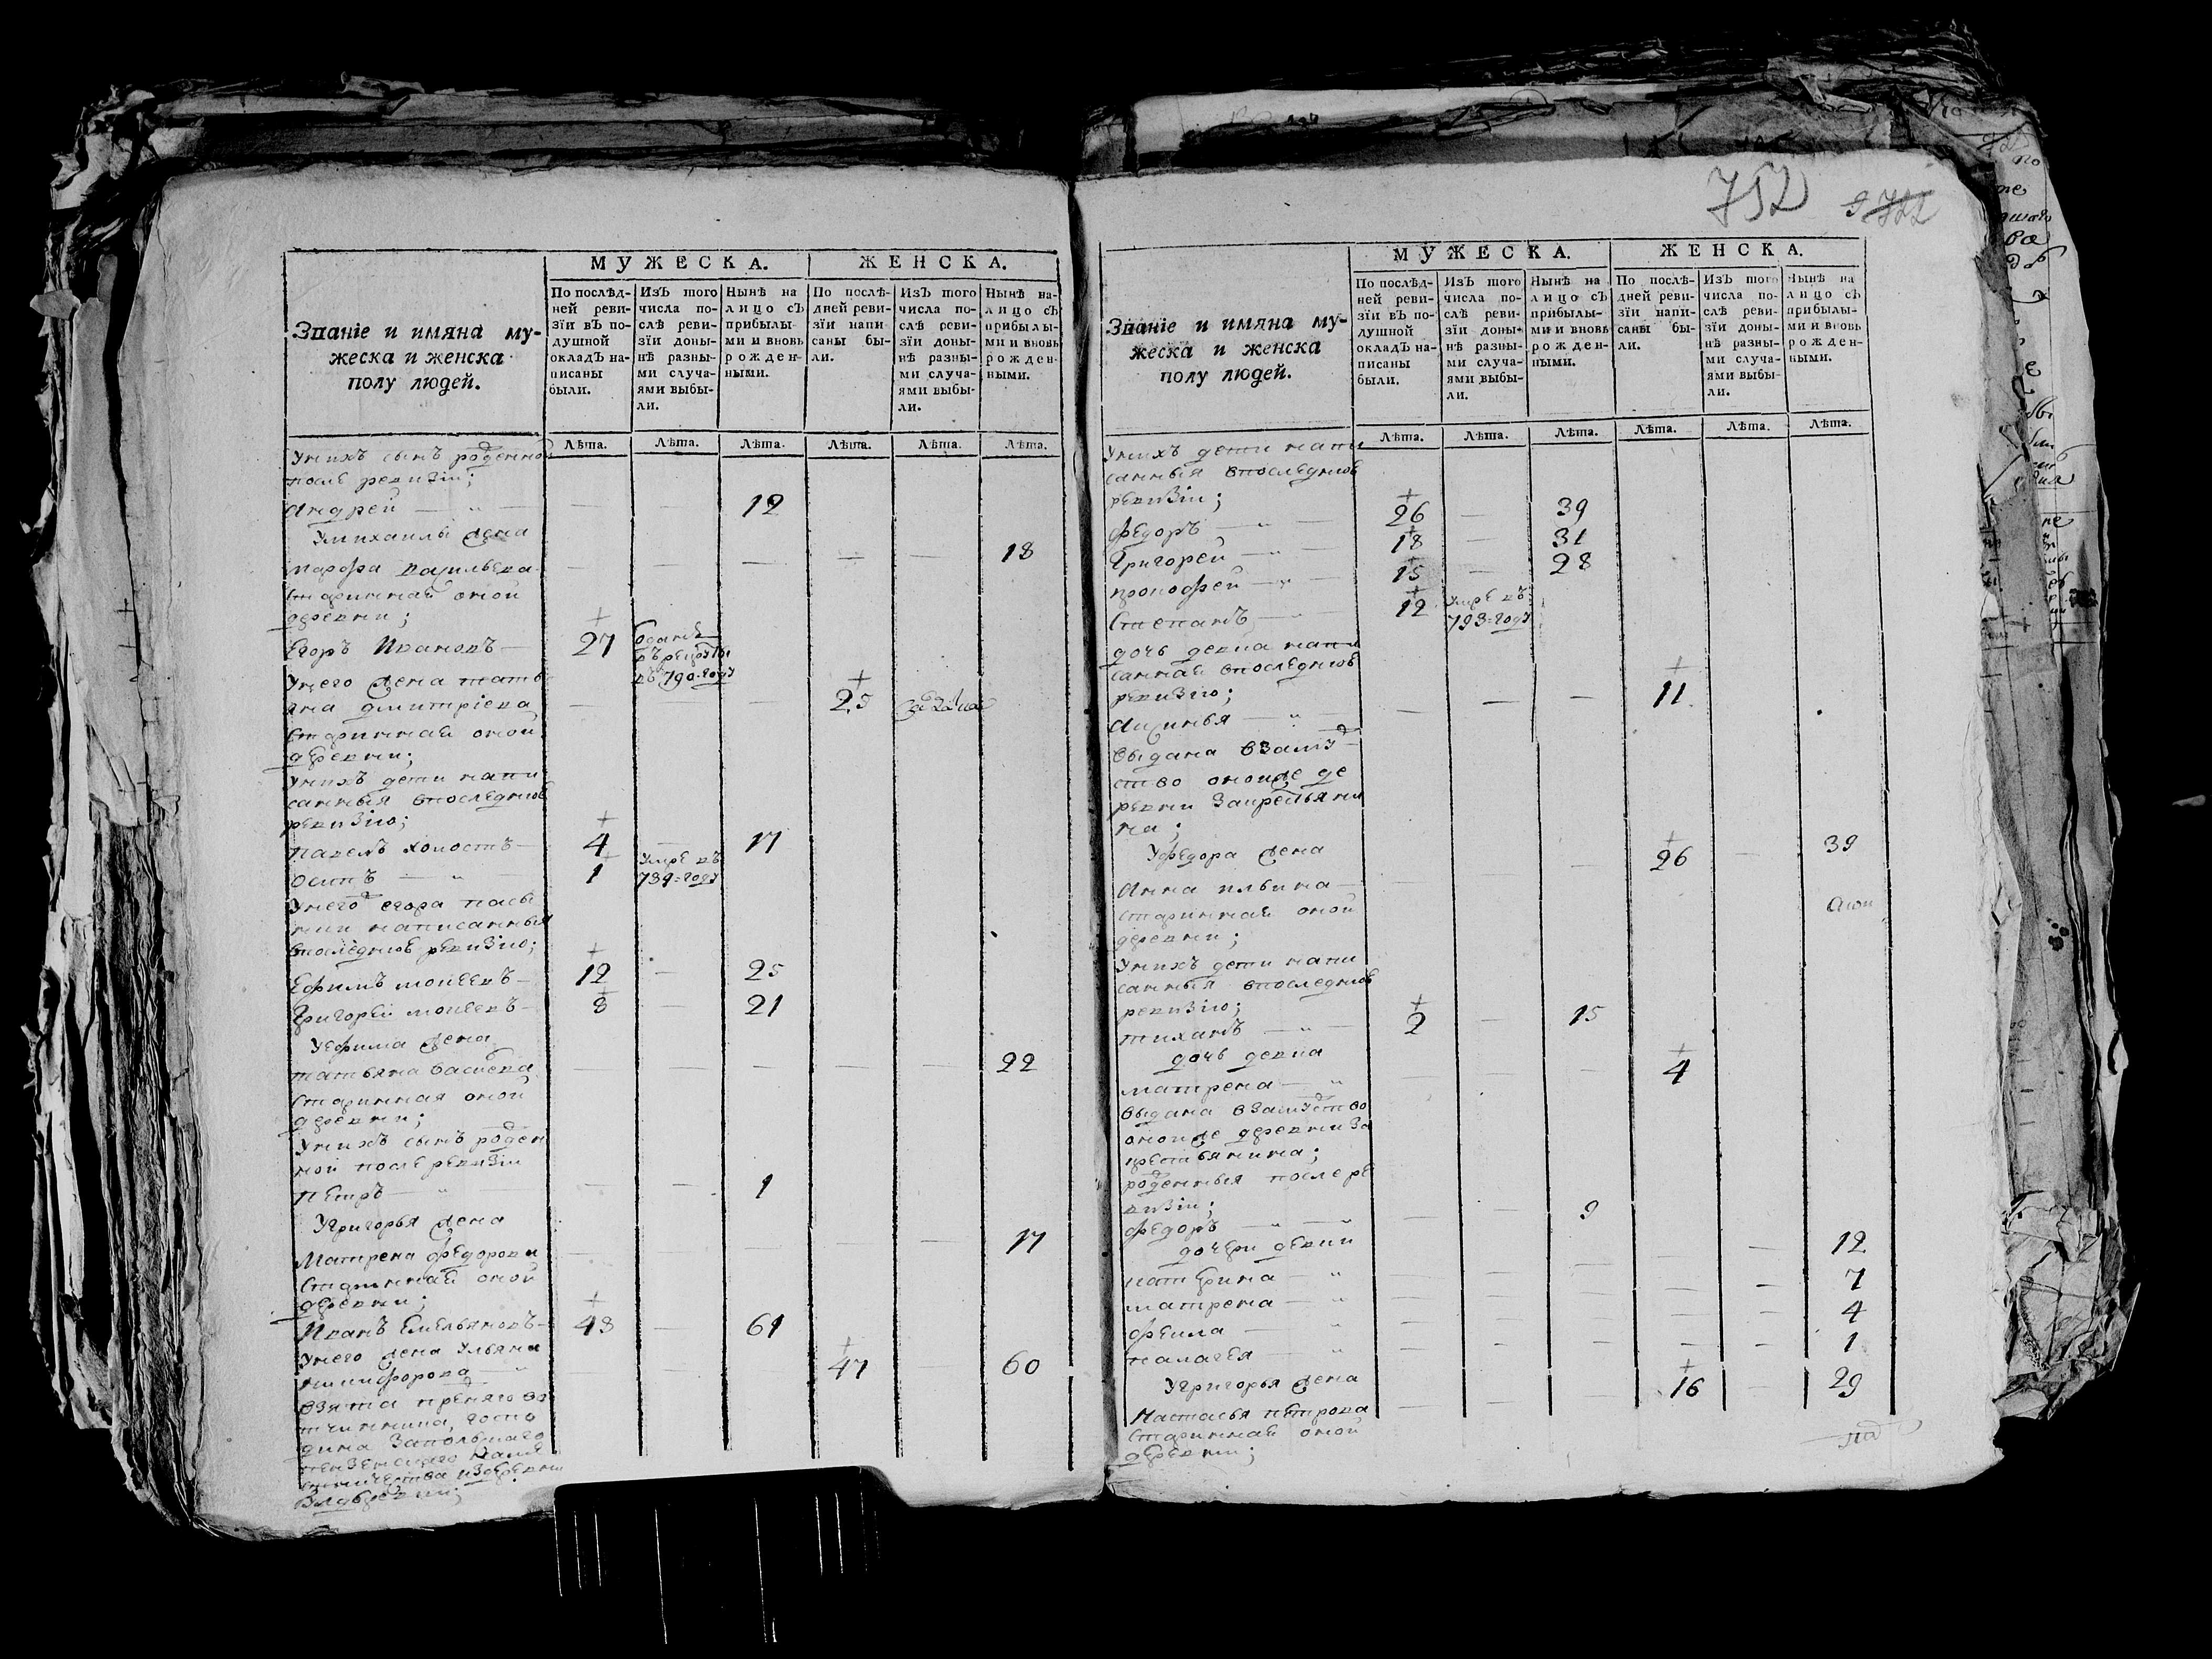 752
9 722
МУЖЕСКА. ЖЕНСКА.
Званіе и имяна му-
жеска и женска
полу людей.
По послѣд-
ней реви-
зіи въ по-
душной
окладъ на-
писаны
были.
Изъ того
числа по-
слѣ реви-
зіи доны-
нѣ разны-
ми случа-
ями выбы-
ли.
Нынѣ на
лицо съ
прибылы-
ми и вновь
рожден-
ными.
По послѣ-
дней реви-
зіи напи-
саны бы-
ли.
Изъ того
числа по-
слѣ реви-
зіи доны-
нѣ разны-
ми случа-
ями выбы-
ли.
Нынѣ на-
лицо съ
прибылы-
ми и вновь
рожден-
ными.
Лѣта. Лѣта. Лѣта. Лѣта. Лѣта. Лѣта.
Унихъ сынъ рожденной
после ревизіи;
Андрей — " — — — 12
Умихаилы жена
марфа васильева — — — — — 18
Старинная оной
деревни;
Егоръ Ивановъ — 27 Отданъ
въ рекруты
въ 790 году
Унего жена тать
яна дмитріева — — — 25
Старинная оной
деревни;
Унихъ дети напи
санныя впоследнюю
ревизію;
павелъ холостъ — 4 — 17
осипъ — " — 1 Умре въ
789 = году
Унего егора пасы
нки написанныя
впоследнюю ревизію;
Ефимъ моисеевъ — 12 — 25
Григорей моисеевъ — 8 — 21
Уефима жена
татьяна — — — — — 22
Старинная оной
деревни;
Унихъ сынъ рожден
ной после ревизіи
петръ — " — — — 1
Угригорья жена
Матрена федорова — — — — — 17
Старинная оной
деревни;
Иванъ Емельяновъ — 48 — 61
Унего жена Ульяна
никифорова — " — 47 — 60
взята
МУЖЕСКА. ЖЕНСКА.
Званіе и имяна му-
жеска и женска
полу людей.
По послѣд-
ней реви-
зіи въ по-
душной
окладъ на-
писаны
были.
Изъ того
числа по-
слѣ реви-
зіи доны-
нѣ разны-
ми случа-
ями выбы-
ли.
Нынѣ на
лицо съ
прибылы-
ми и вновь
рожден-
ными.
По послѣ-
дней реви-
зіи напи-
саны бы-
ли.
Изъ того
числа по-
слѣ реви-
зіи доны-
нѣ разны-
ми случа-
ями выбы-
ли.
Нынѣ на
лицо съ
прибылы-
ми и вновь
рожден-
ными.
Лѣта. Лѣта. Лѣта. Лѣта. Лѣта. Лѣта.
Унихъ дети напи
санныя впоследнюю
ревизіи;
федоръ — " — 26 — 39
Григорей — " — 18 — 31
прокофей — " — 15 — 28
Степанъ — " 12 Умре въ
793 = году
дочь девка напи
санная впоследнюю
ревизію;
Аксинья — " — — — — 11
выдана взамуж
ство оной же де
ревни закрестьяни
на;
Уфедора жена
Анна ильина — — — — 26 — 39
старинная оной
деревни;
Унихъ дети напи
санныя впоследнюю
ревизію;
тиханъ — " — 2 — 15
дочь девка
матрена — " — — 4
выдана взамужство
оной же деревни за
крестьянина;
рожденныя после ре
визіи;
федоръ — " — — — 9
дочери девки
катерина — " — — — — — 12
матрена — " — — — — — 7
фекла — " — — — — — 4
палагея — " — — — — — 1
Угригорья жена
Настасья петрова — — — 16 — 29
Старинная оной
деревни;